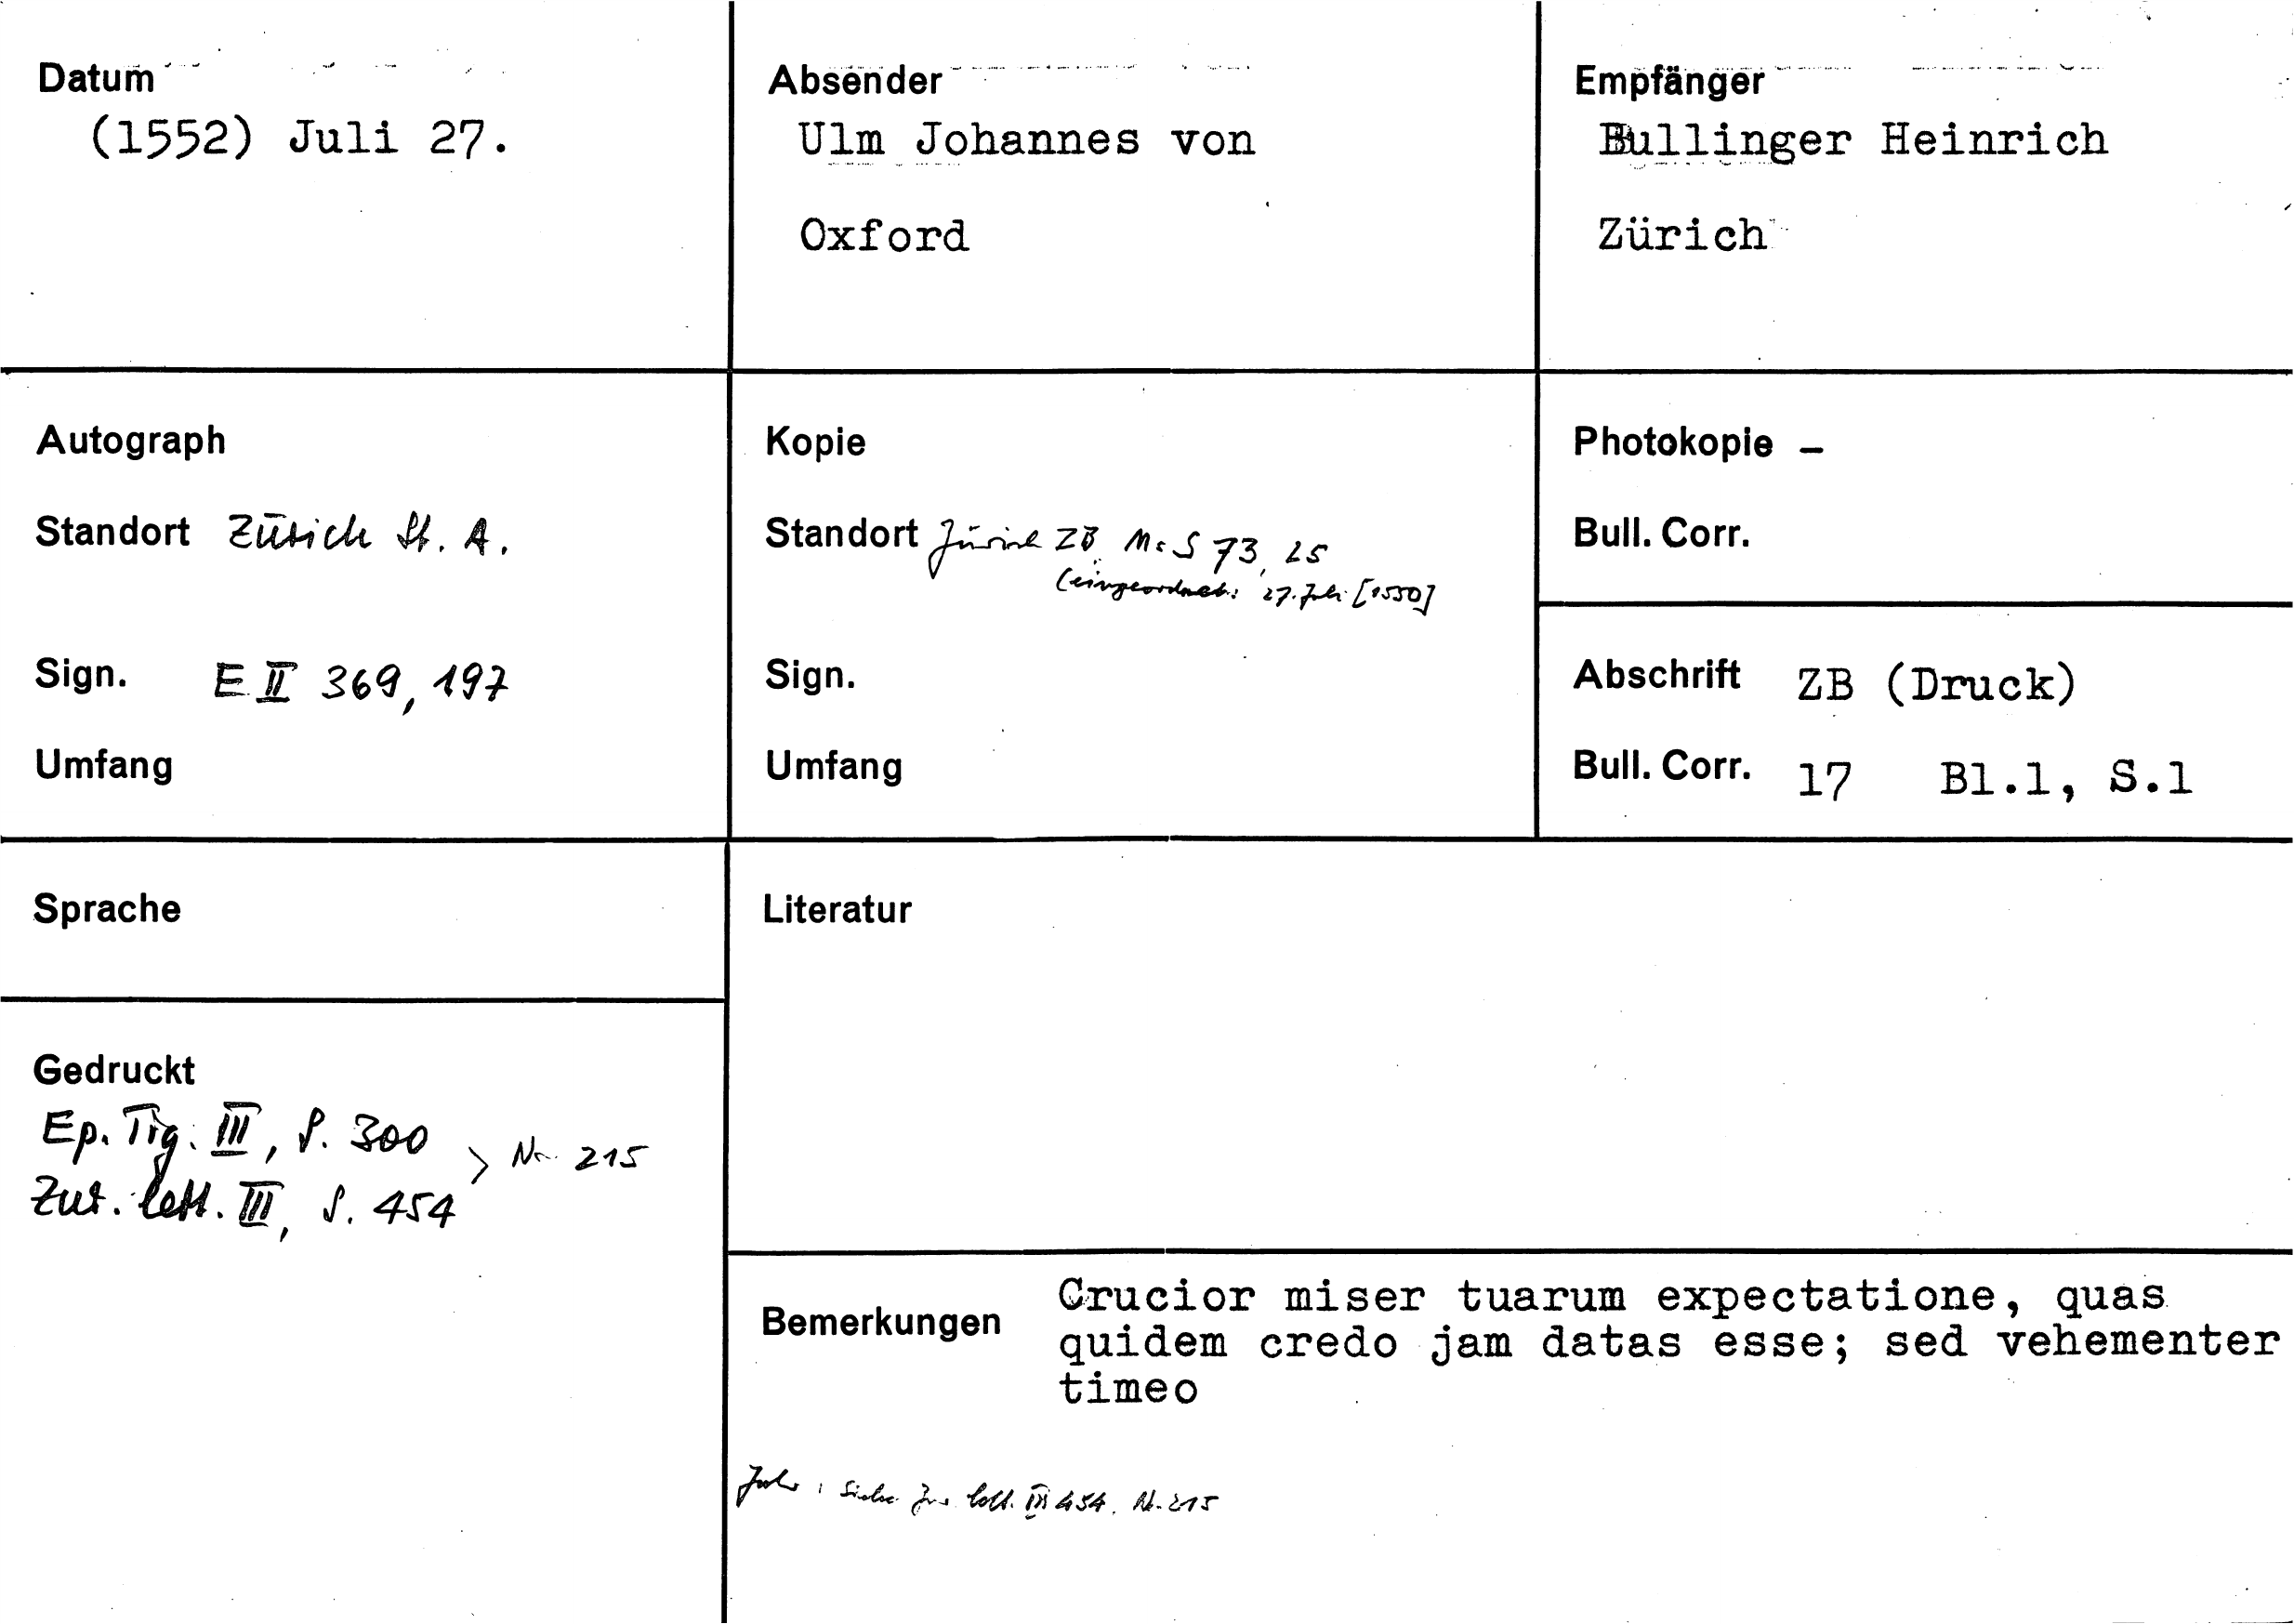 Datum
(1552) Juli 27.
Absender
Ulm Johannes von
Oxford
Empfänger
Bullinger Heinrich
Zürich
Autograph
Standort Zürich St. A.
Sign. E II 369, 197
Umfang
Kopie
Standort Zürich ZB Ms S 73, 25
(eingeordnet: 27. Juli [1550]
Sign.
Umfang
Photokopie –
Bull. Corr.
Abschrift ZB (Druck)
Bull. Corr. 17 Bl.1, S.1
Sprache
Literatur
Gedruckt
Ep. Tig. III, S. 300
> Nr. 215
Zur. lett. III, S. 454
Bemerkungen
Crucior miser tuarum expectatione, quas
quidem credo jam datas esse; sed vehementer
timeo
Jahr: siehe Zur. lett. III 454. Nr. 215